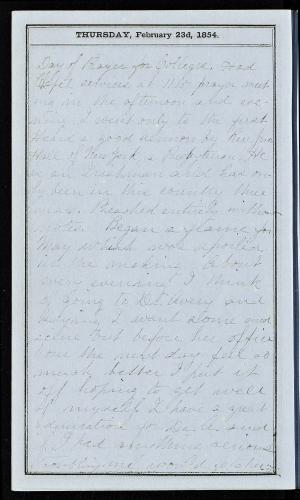 THURSDAY, February 23d, 1854.
Day of Prayer for Colleges. Good
services at 11. prayer meet
ing in the afternoon and eve-
ning. I went only to the first
Heard a good sermon by Rev. Jno
Hall of New York, a Presbyterian. He
is an Irishman and had on-
ly been in this country three
. Preached entirely without
notes. Began a for
May which was spoiled
in the making. About
every evening I think
of going to Dr. and
I want some med
icine but before her office
hour the next day feel so
much better I put it
off hoping to get well
of myself. I have a great
admiration for Dr. and
if I had anything serious